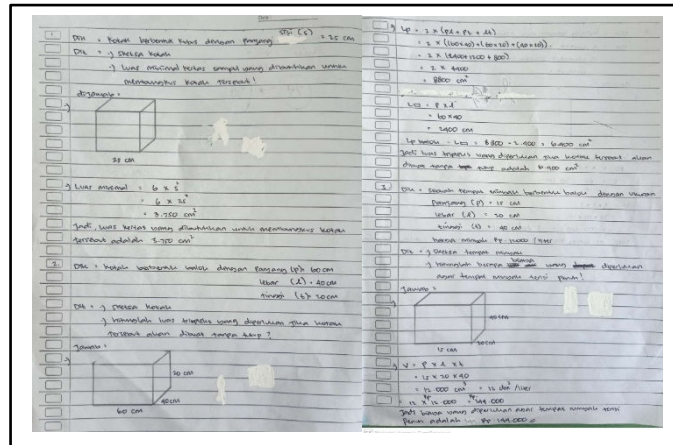 1. Dik = kotak berbentuk kubus dengan panjang sisi (s) = 25 cm
Dit = •) sketsa kotak
•) luas minimal kertas sampul yang dibutuhkan untuk
membungkus kotak tersebut!
dijawab =
25 cm
•) Luas minimal = 6 x s²
= 6 x 25²
= 3.750 cm²
Jadi, luas kertas yang dibutuhkan untuk membungkus kotak
tersebut adalah 3.750 cm²
2. Dik = kotak berbentuk balok dengan panjang (p) = 60 cm
lebar (l) = 40 cm
tinggi (t) = 20 cm
Dit = •) sketsa kotak
•) hitunglah luas tripleks yang diperlukan jika kotak
tersebut akan dibuat tanpa tutup?
Jawab =
20 cm
40 cm
60 cm
•) Lp = 2 x (pl + pt + lt)
= 2 x (60x40) + (60x20) + (40x20)
= 2 x (2400+1200+800)
= 2 x 4400
= 8800 cm²
L = p x l
= 60 x 40
= 2400 cm
Lp balok - L = 8.800 - 2.400 = 6.400 cm²
Jadi luas tripleks yang diperlukan jika kotak tersebut akan
dibuat tanpa adalah 6.400 cm²
3. Dik = sebuah tempat minyak berbentuk balok dengan ukuran
panjang (p) = 15 cm
lebar (l) = 20 cm
tinggi (t) = 40 cm
harga minyak Rp. 12000 /liter
Dit = •) sketsa tempat minyak
•) hitunglah berapa yang diperlukan
agar tempat minyak terisi penuh!
Jawab =
40 cm
20 cm
15 cm
•) V = p x l x t
= 15 x 20 x 40
= 12.000 cm³ = 12 dm³/liter
= 12 x Rp 12.000 = Rp 144.000
Jadi biaya yang diperlukan agar tempat minyak terisi
penuh adalah Rp 144.000